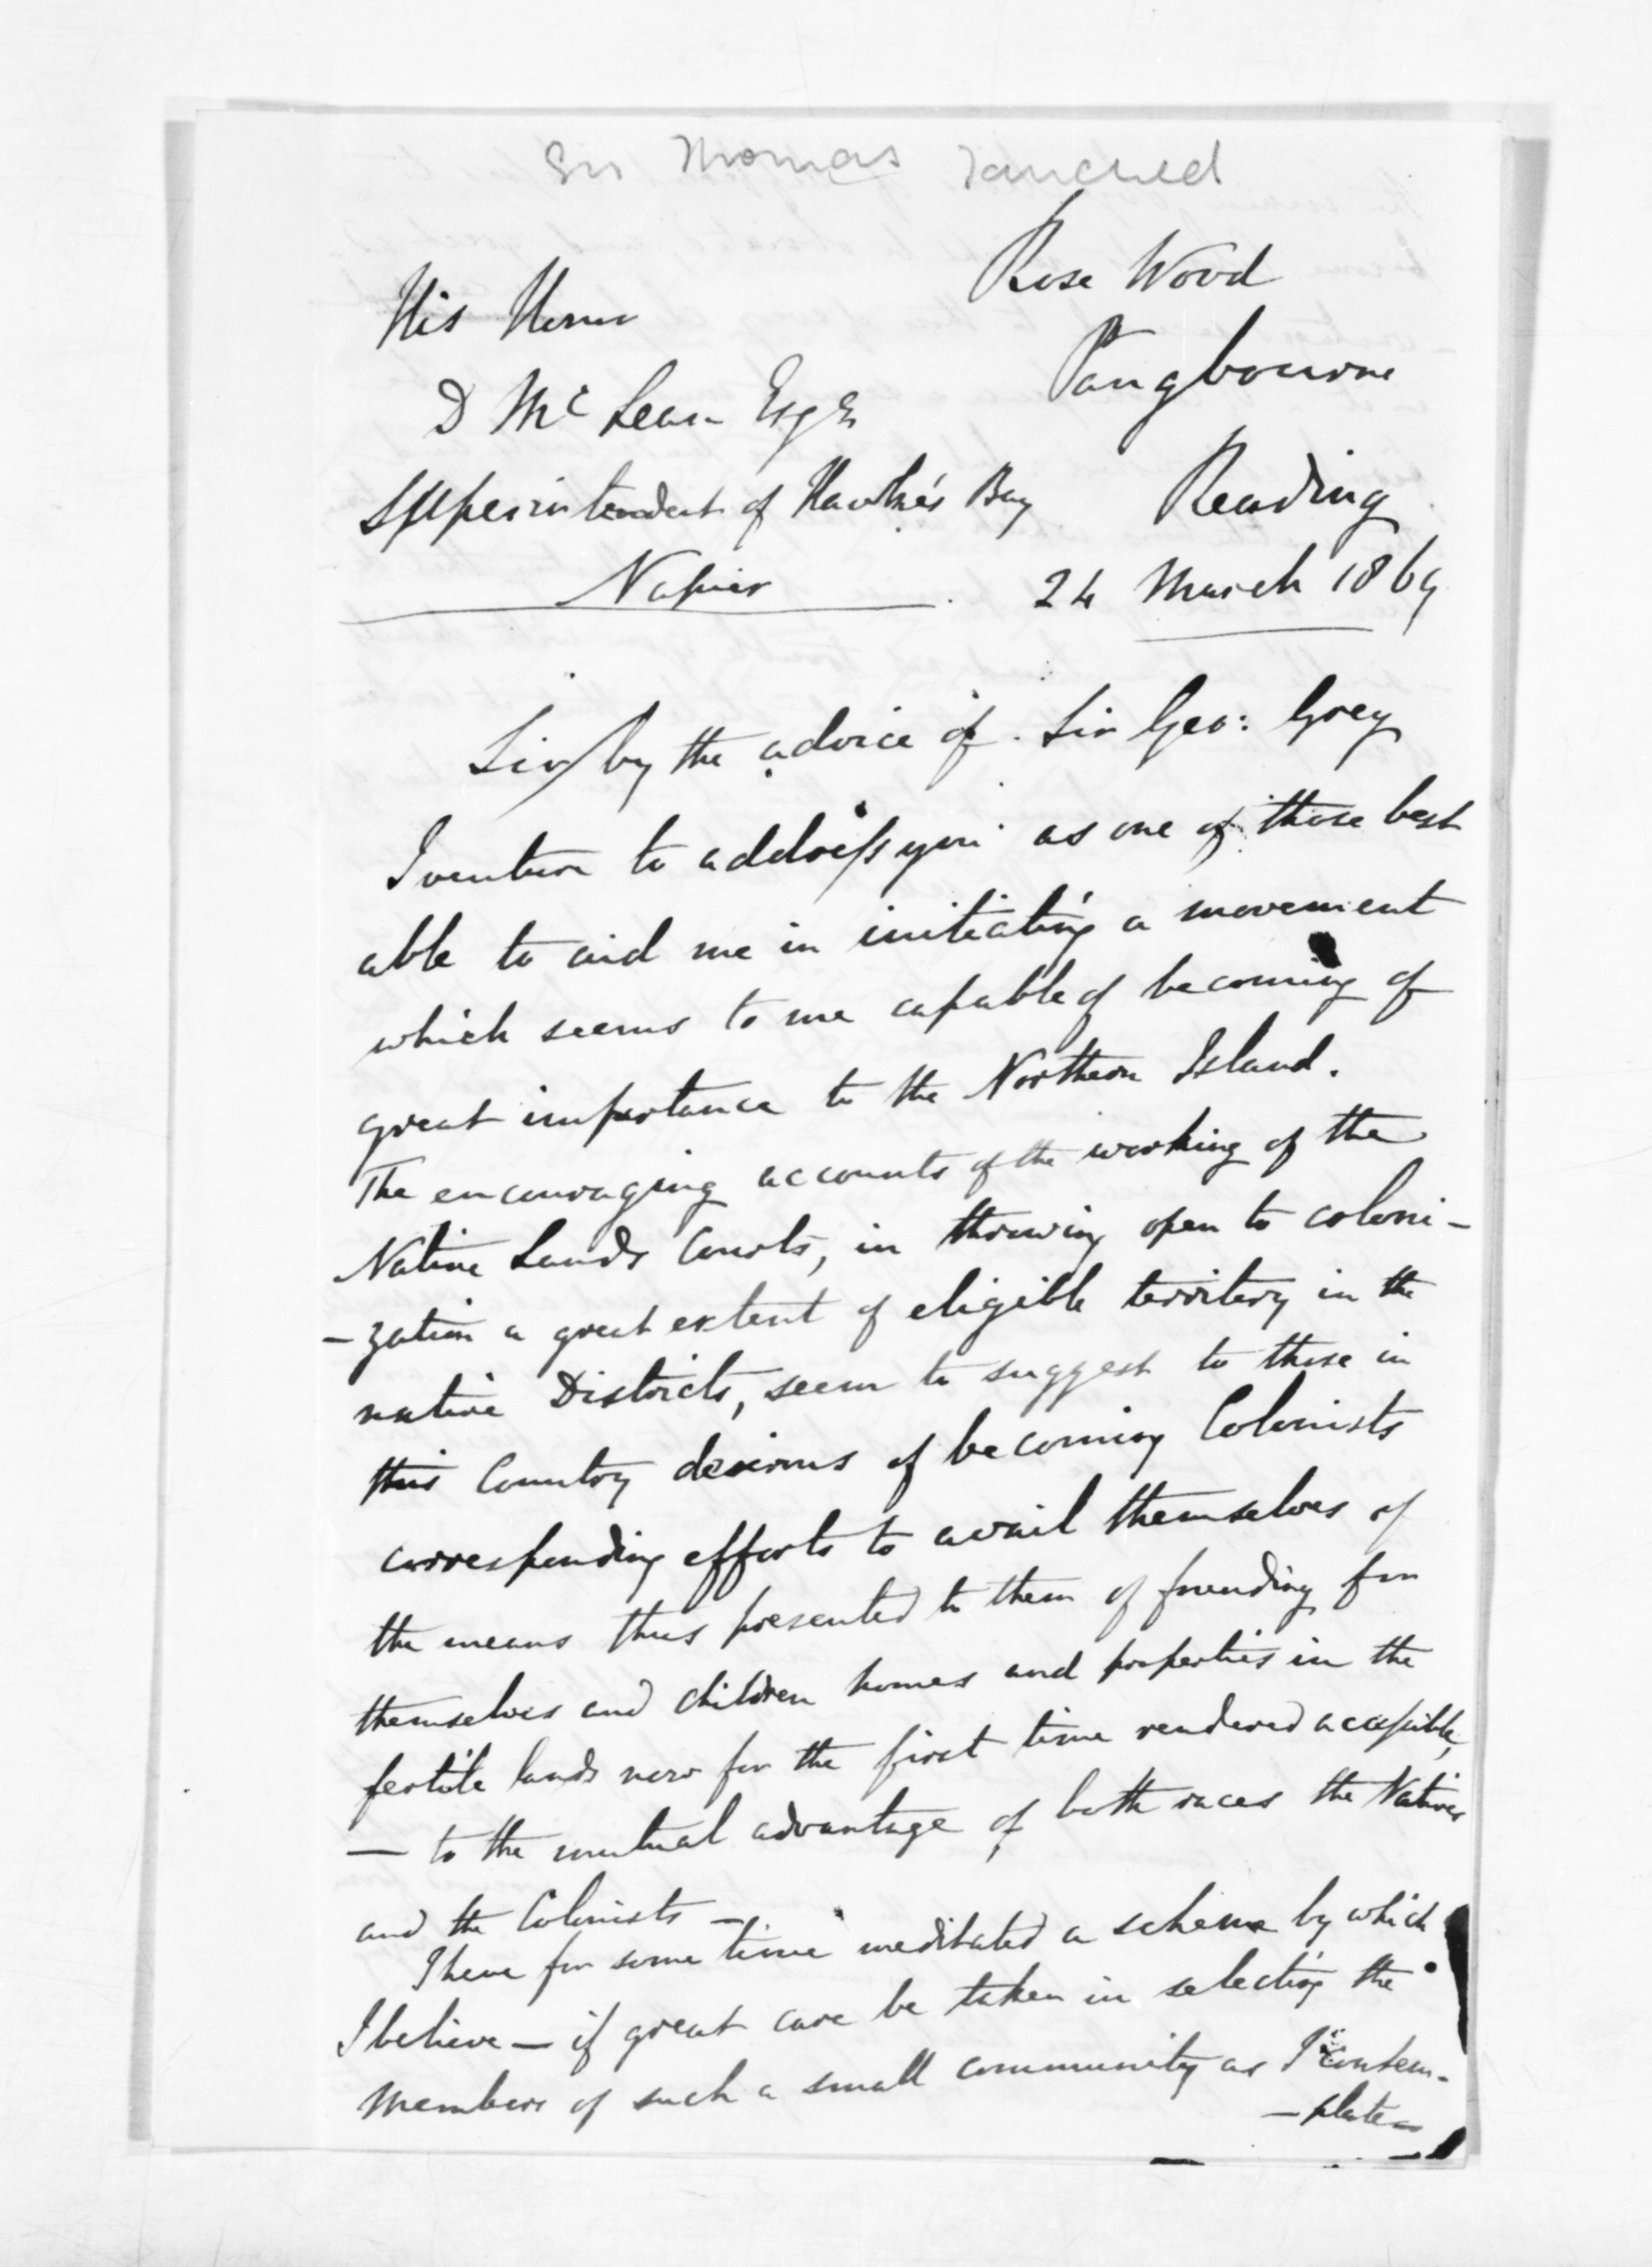 Sir Thomas Tancred
Rose Wood
His Honor
Pangbourne
D McLean Esqre
Superintendent of Hawke's Bay
Reading
Napier
24 March 1869
Sir/ by the advice of Sir Geo: Grey
I venture to address you as one of those best
able to aid me in initiating a movement
which seems to me capable of becoming of
great importance to the Northern Island.
The encouraging accounts of the working of the
Native Lands Courts, in throwing open to coloni-
-zation a great extent of eligible territory in the
native Districts, seem to suggest to those in
this Country desirous of becoming Colonists
corresponding efforts to avail themselves of
the means thus presented to them of founding for
themselves and children homes and properties in the
fertile lands now for the first time rendered accessible,
— to the mutual advantage of both races the Natives
and the Colonists —
I have for some time meditated a scheme by which
I believe — if great care be taken in selecting the
members of such a small community as I contem-
-plate